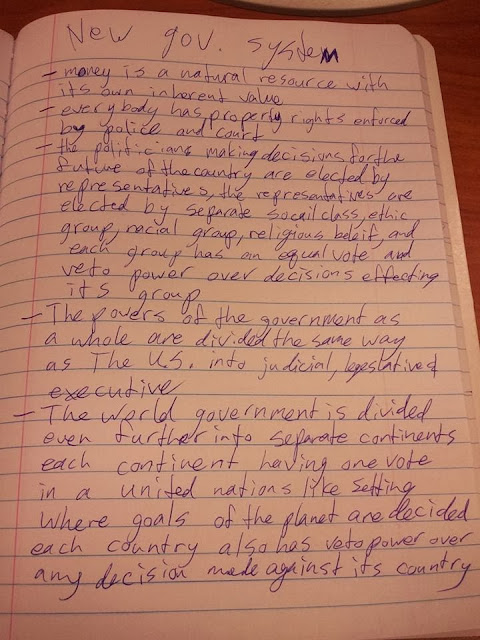 New gov. system
- money is a natural resource with
its own inherent value
- everybody has property rights enforced
by police and court
- the politicians making decisions for the
future of the country are elected by
representatives, the representatives are
elected by separate socail class, ethic
group, racial group, religious beleif, and
each group has an equal vote and
veto power over decisions effecting
its group
- The powers of the government as
a whole are divided the same way
as The U.S. into judicial, legislative &
executive
- The world government is divided
even further into separate continents
each continent having one vote
in a united nations like setting
where goals of the planet are decided
each country also has veto power over
any decision made against its country